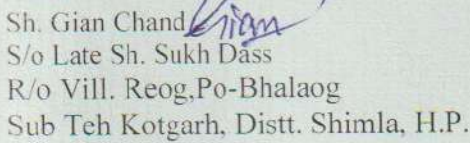 Sh. Gian Chand Gian
S/o Late Sh. Sukh Dass
R/o Vill. Reog,Po-Bhalaog
Sub Teh Kotgarh, Distt. Shimla, H.P.